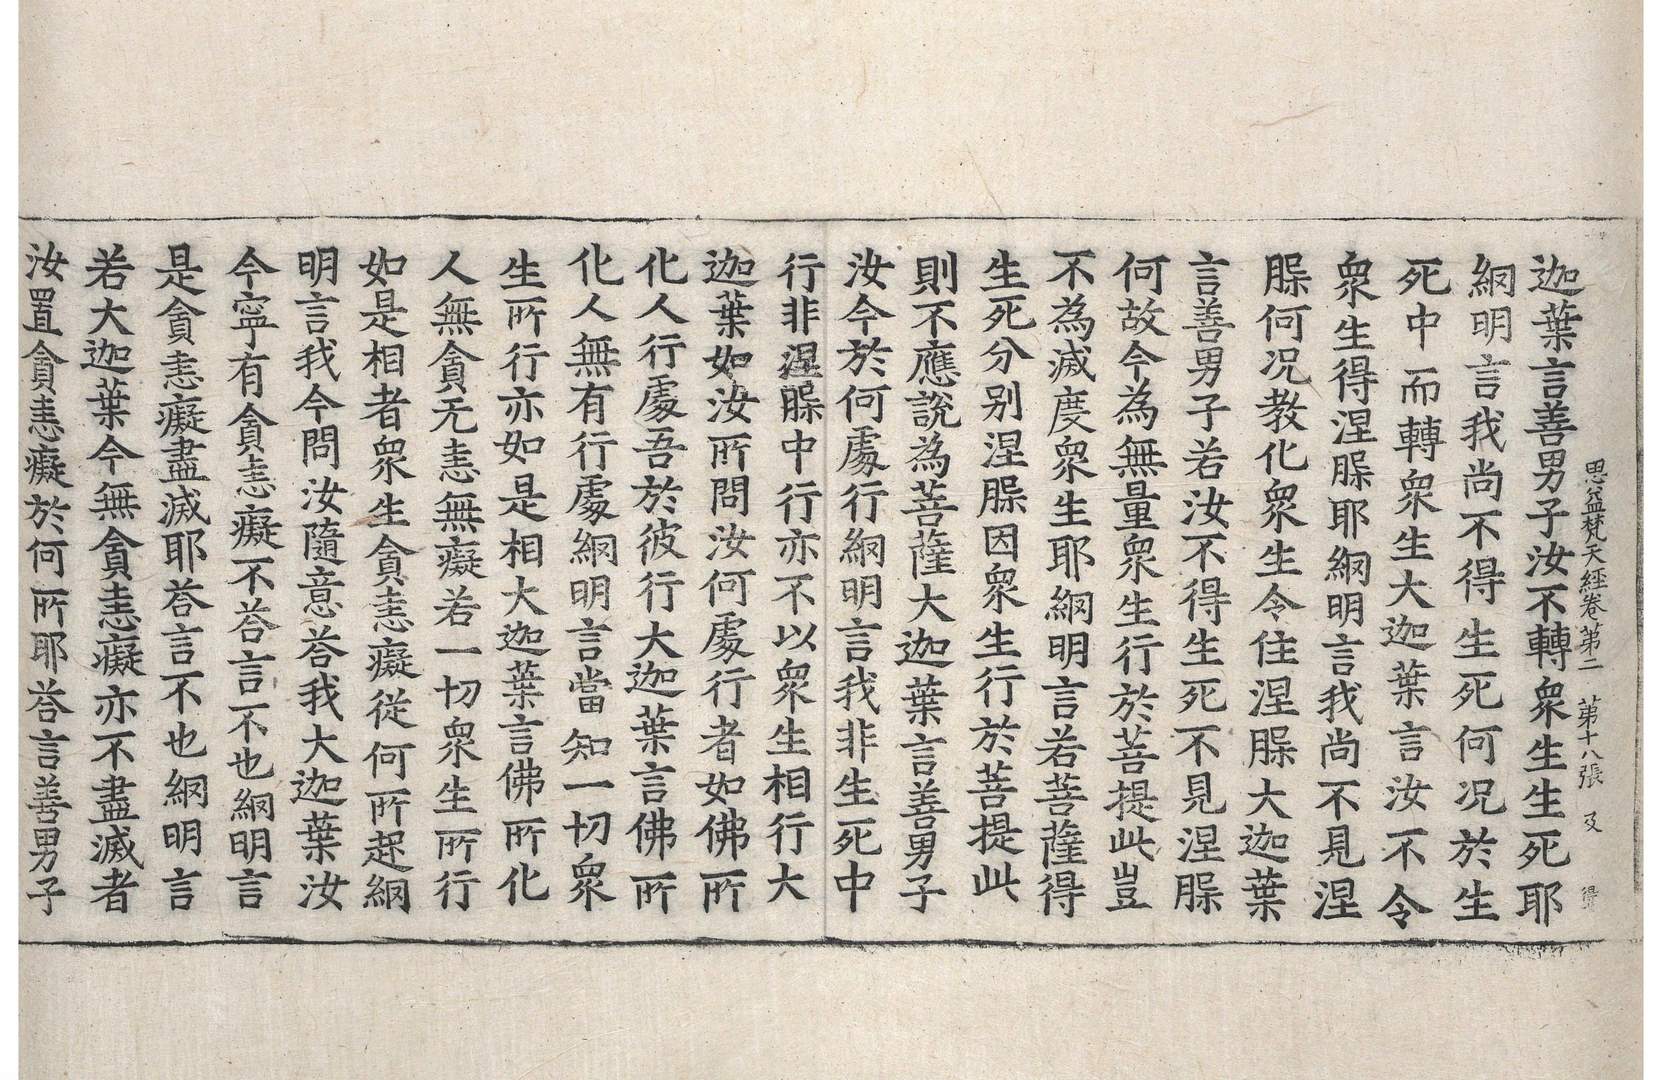 思益梵天經卷第二 第十八張 及 得
迦葉言善男子汝不轉衆生生死耶
網明言我尚不得生死何况於生
死中而轉衆生大迦葉言汝不令
衆生得涅槃耶網明言我尚不見涅
槃何况教化衆生令住涅槃大迦葉
言善男子若汝不得生死不見涅槃
何故今為無量衆生行於菩提此豈
不為滅度衆生耶網明言若菩薩得
生死分别涅槃因衆生行於菩提此
則不應說為菩薩大迦葉言善男子
汝今於何處行網明言我非生死中
行非涅槃中行亦不以衆生相行大
迦葉如汝所問汝何處行者如佛所
化人行處吾於彼行大迦葉言佛所
化人無有行處網明言當知一切衆
生所行亦如是相大迦葉言佛所化
人無貪无恚無癡若一切衆生所行
如是相者衆生貪恚癡從何所起網
明言我今問汝隨意荅我大迦葉汝
今寧有貪恚癡不荅言不也網明言
是貪恚癡盡滅耶荅言不也網明言
若大迦葉今無貪恚癡亦不盡滅者
汝置貪恚癡於何所耶荅言善男子